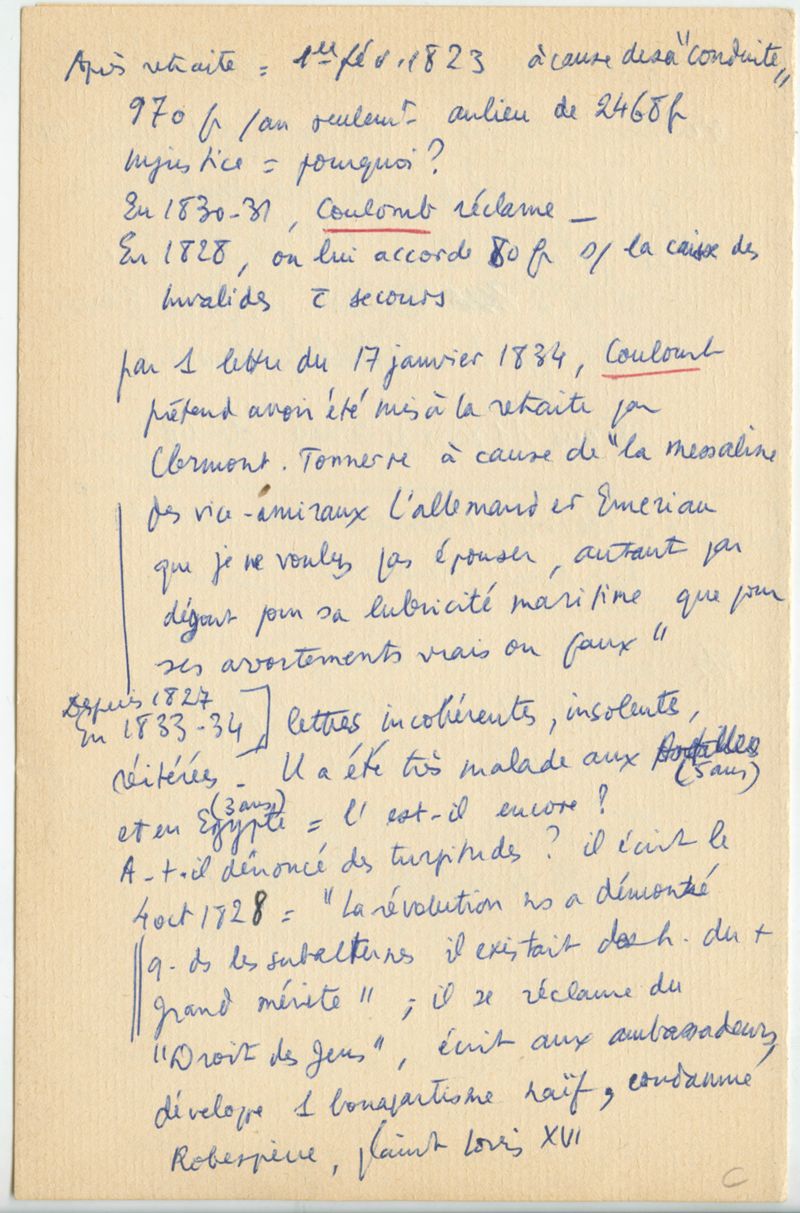 Après retraite = 1er fév. 1823 à cause de sa "conduite"
970 fr/an seulemt au lieu de 2468 fr
Injustice = pourquoi ?
En 1830-31, Coulomb réclame –
En 1828, on lui accorde 80 fr s/ la caisse des
Invalides c secours
par 1 lettre du 17 janvier 1834, Coulomb
prétend avoir été mis à la retraite par
Clermont-Tonnerre à cause de "la messaline
des vice-amiraux L'allemand et Emeriau
que je ne voulus pas épouser, autant par
dégout pour sa lubricité maritime que pour
ses avortements vrais ou faux"
Depuis 1827
En 1833-34] lettres incohérentes, insolentes,
réitérées – Il a été très malade aux Antilles
(5 ans)
(3 ans)
et en Egypte = l'est-il encore ?
A-t-il dénoncé des turpitudes ? il écrit le
4 oct 1828 = "La révolution ns a démontré
q. ds les subalternes il existait des h. du +
grand mérite" ; il se réclame du
"Droit des Gens", écrit aux ambassadeurs,
développe 1 bonapartisme naïf, condamne
Robespierre, plaint Louis XVI
C